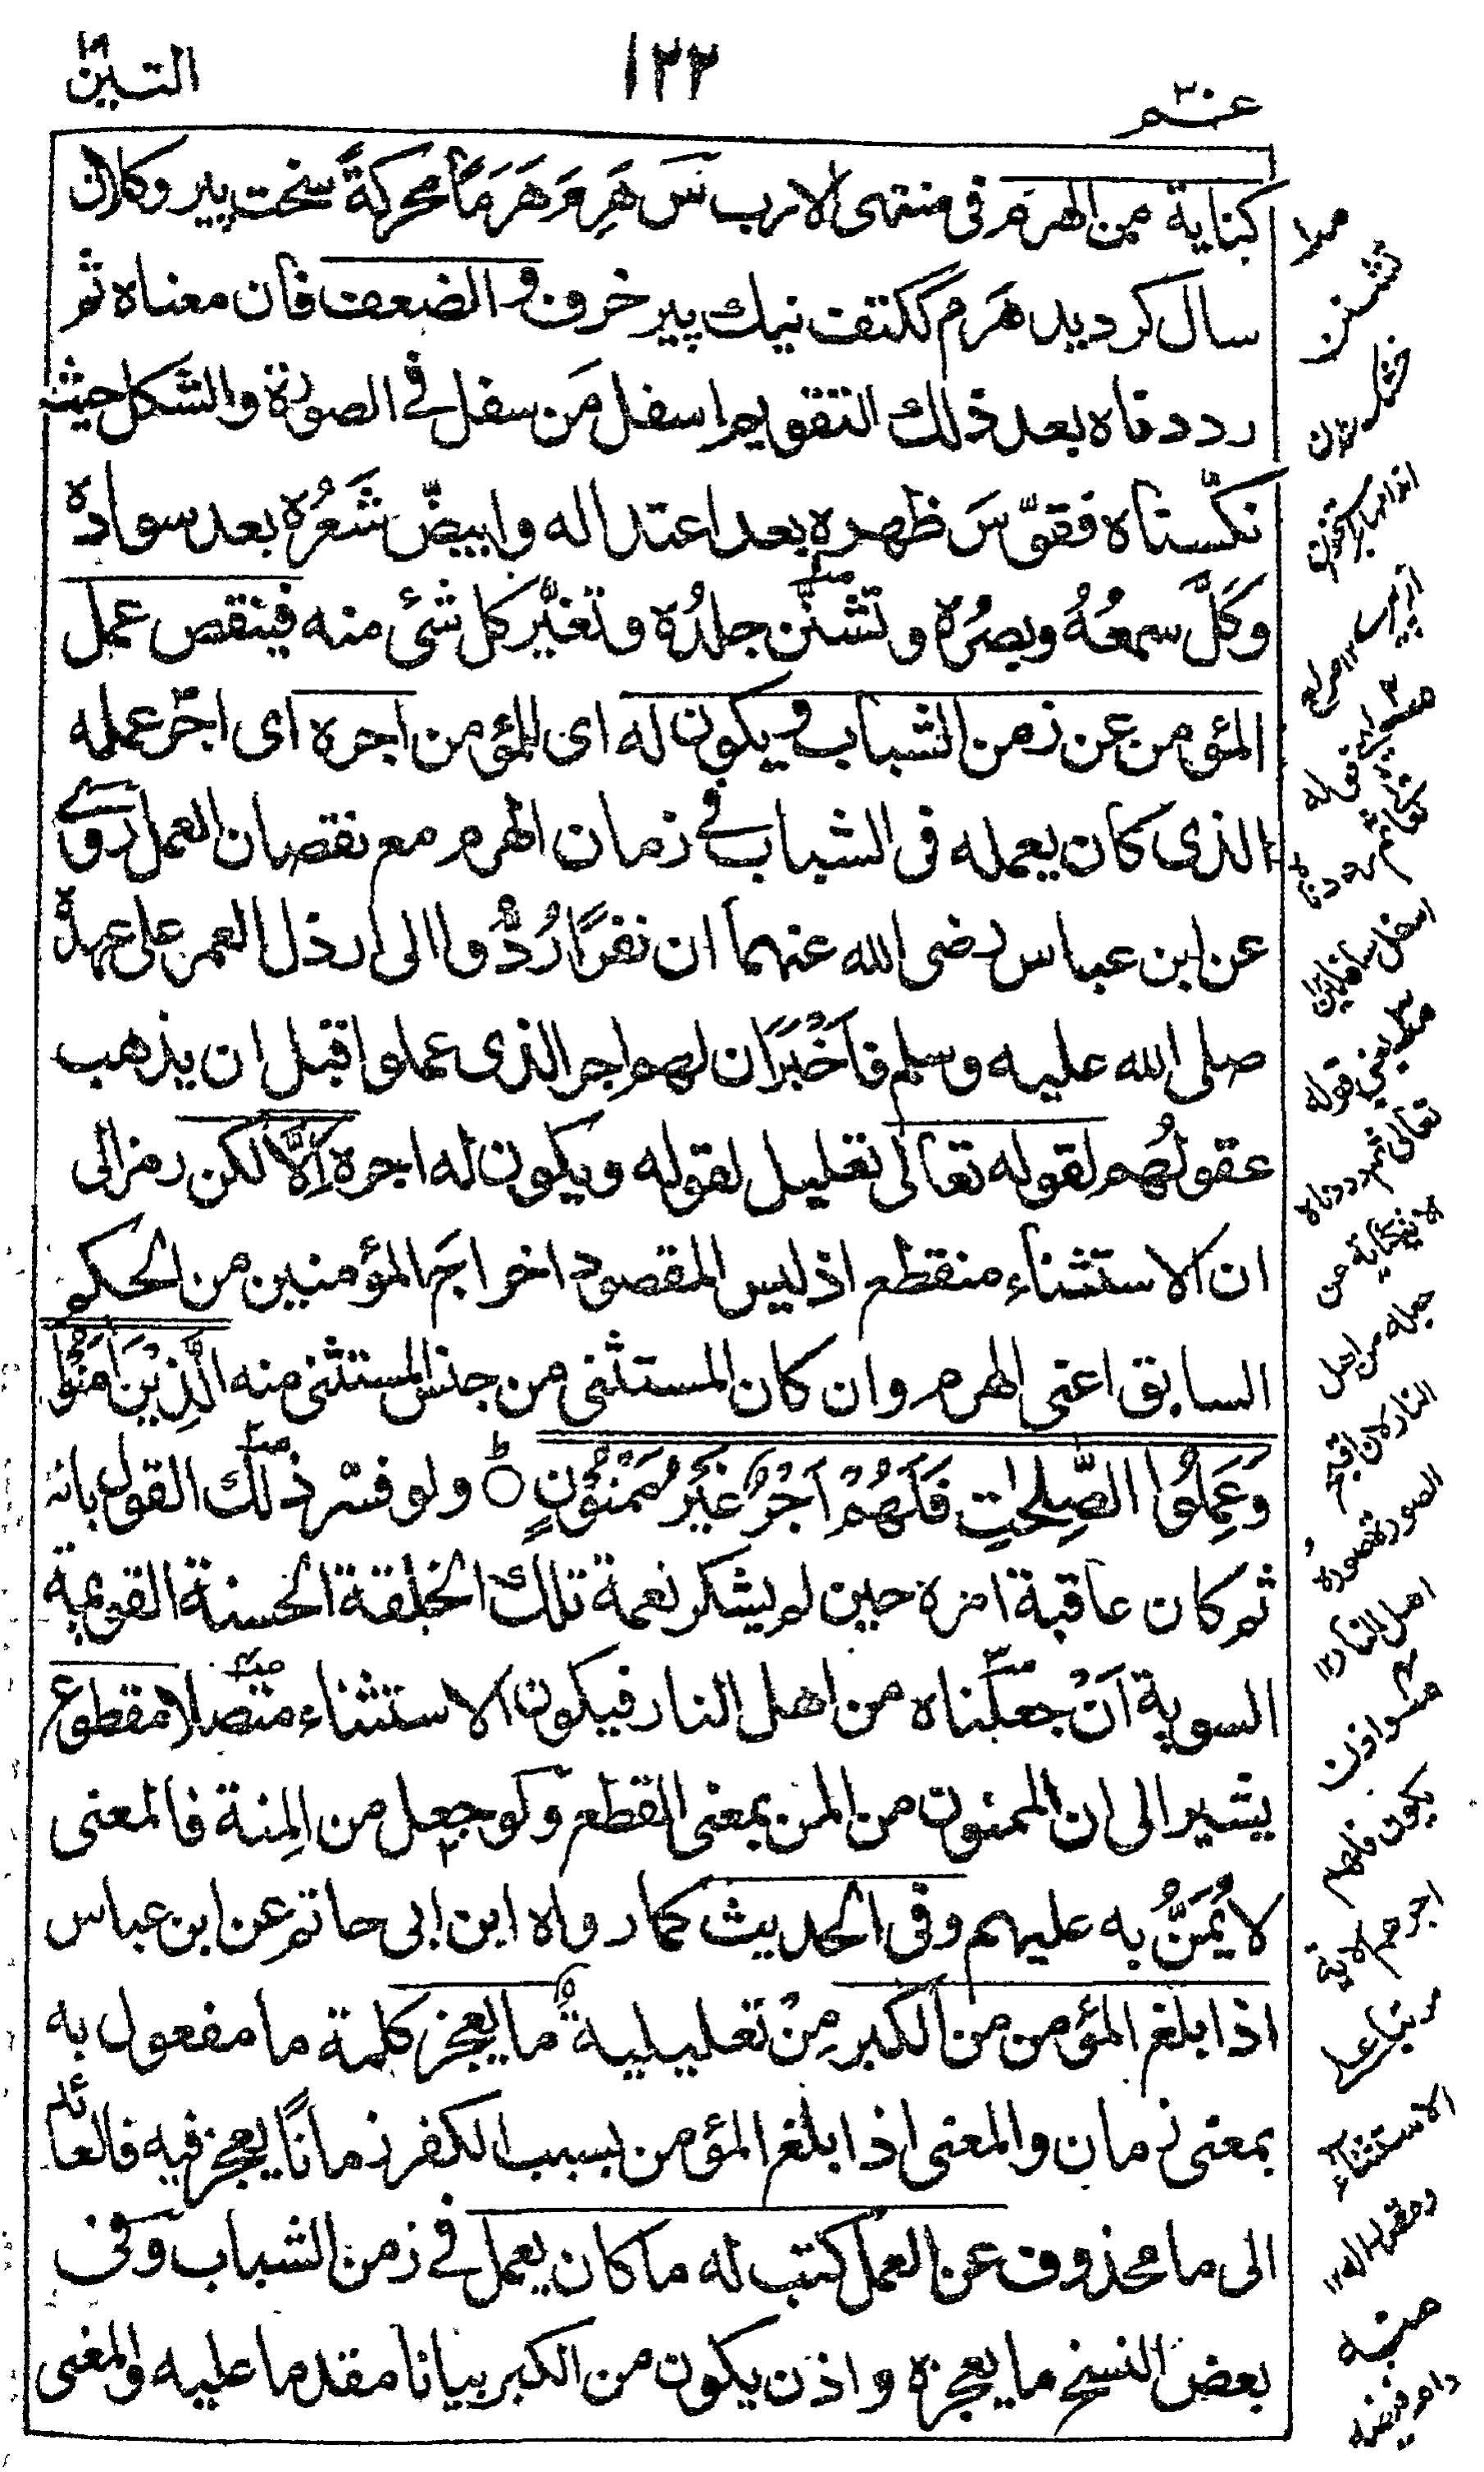 عم ٣٠
١٢٢
التين
كناية عن الهرم فى منتهى الارب س هَرِمَ هَرَمًا محركةً سخت پير وكلان
سال كرديد هَرِم ككتف نيك پير خرف و الضعف فان معناه ثم
رددناه بعد ذلك التقويم اسفل مَن سفل فى الصورة والشكل حيث
نكّسناه فقوّسَ ظهره بعد اعتداله وابيضّ شَعرُه بعد سواده
وكَلَّ سمعُهُ وبصرُه و تشنّن جلدُه وتغيّر كل شئ منه فينقص عمل
المؤمن عن زمن الشباب و يكون له اى للمؤمن اجره اى اجر عمله
الذى كان يعمله فى الشباب فى زمان الهرم مع نقصان العمل روى
عن ابن عباس رضى الله عنهما ان نفرًا رُدُّوا الى ارذل العمر على عهده
صلى الله عليه وسلم فاَخْبَرَ ان لهم اجر الذى عملوا قبل ان يذهب
عقولُهم لقوله تعالى تعليل لقوله ويكون له اجره اِلَّا لكن رمز الى
ان الاستثناء منقطع اذ ليس المقصود اخراجَ المؤمنين من الحكم
السابق اعنى الهرم وان كان المستثنى من جنس المستثنى منه الَّذِيْنَ اٰمَنُوْا
وَعَمِلُوا الصّٰلِحٰتِ فَلَهُمْ اَجْرٌ غَيْرُ مَمْنُوْنٍ ۝ ط ولو فسّر ذلك القول بانه
ثم كان عاقبة امره حين لم يشكر نعمة تلك الخلقة الحسنة القويمة
السوية اَنْ جعلناه من اهل النار فيكون الاستثناء متصلا مقطوع
يشير الى ان الممنون من المن بمعنى القطع ولو جعل من المنة فالمعنى
لا يُمَنُّ به عليهم وفى الحديث كما رواه ابن ابى حاتم عن ابن عباس
اذا بلغ المؤمن من الكبر مِنْ تعليلية ما يعجز كلمة ما مفعول به
بمعنى زمان والمعنى اذا بلغ المؤمن بسبب الكفر زمانًا يعجز فيه فالعائد
الى ما محذوف عن العمل كتب له ما كان يعمل فى زمن الشباب وفى
بعض النسخ ما يعجزه و اذن يكون من الكبر بيانا مقدما عليه والمعنى
تشنن
اسفل سافلين
يعنى قوله
تعالى ثم رددناه
النار كان اقبح
الصورة صورة
اهل النار ١٢
يكون فلهم
اجرهم
الاستثناء